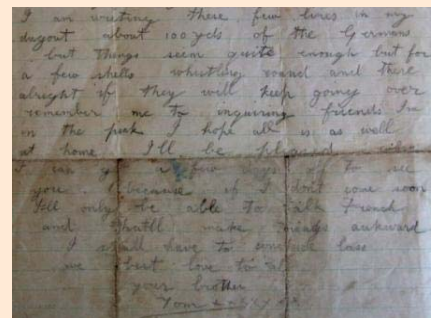 I am writing these few lines in my
dugout about 100 yds of the Germans
but things seem quite enough but for
a few shells whistling round and there
alreght if they will keep going over
remember me to inquiring friends Im
in the pink I hope all is as well
at home I'll be pleased when
I can get a few days of to see
you. because if I dont come soon
Ill only be able to talk French
and that'll make things awkward
I shall have to conclude
best love to all
your brother
Tom